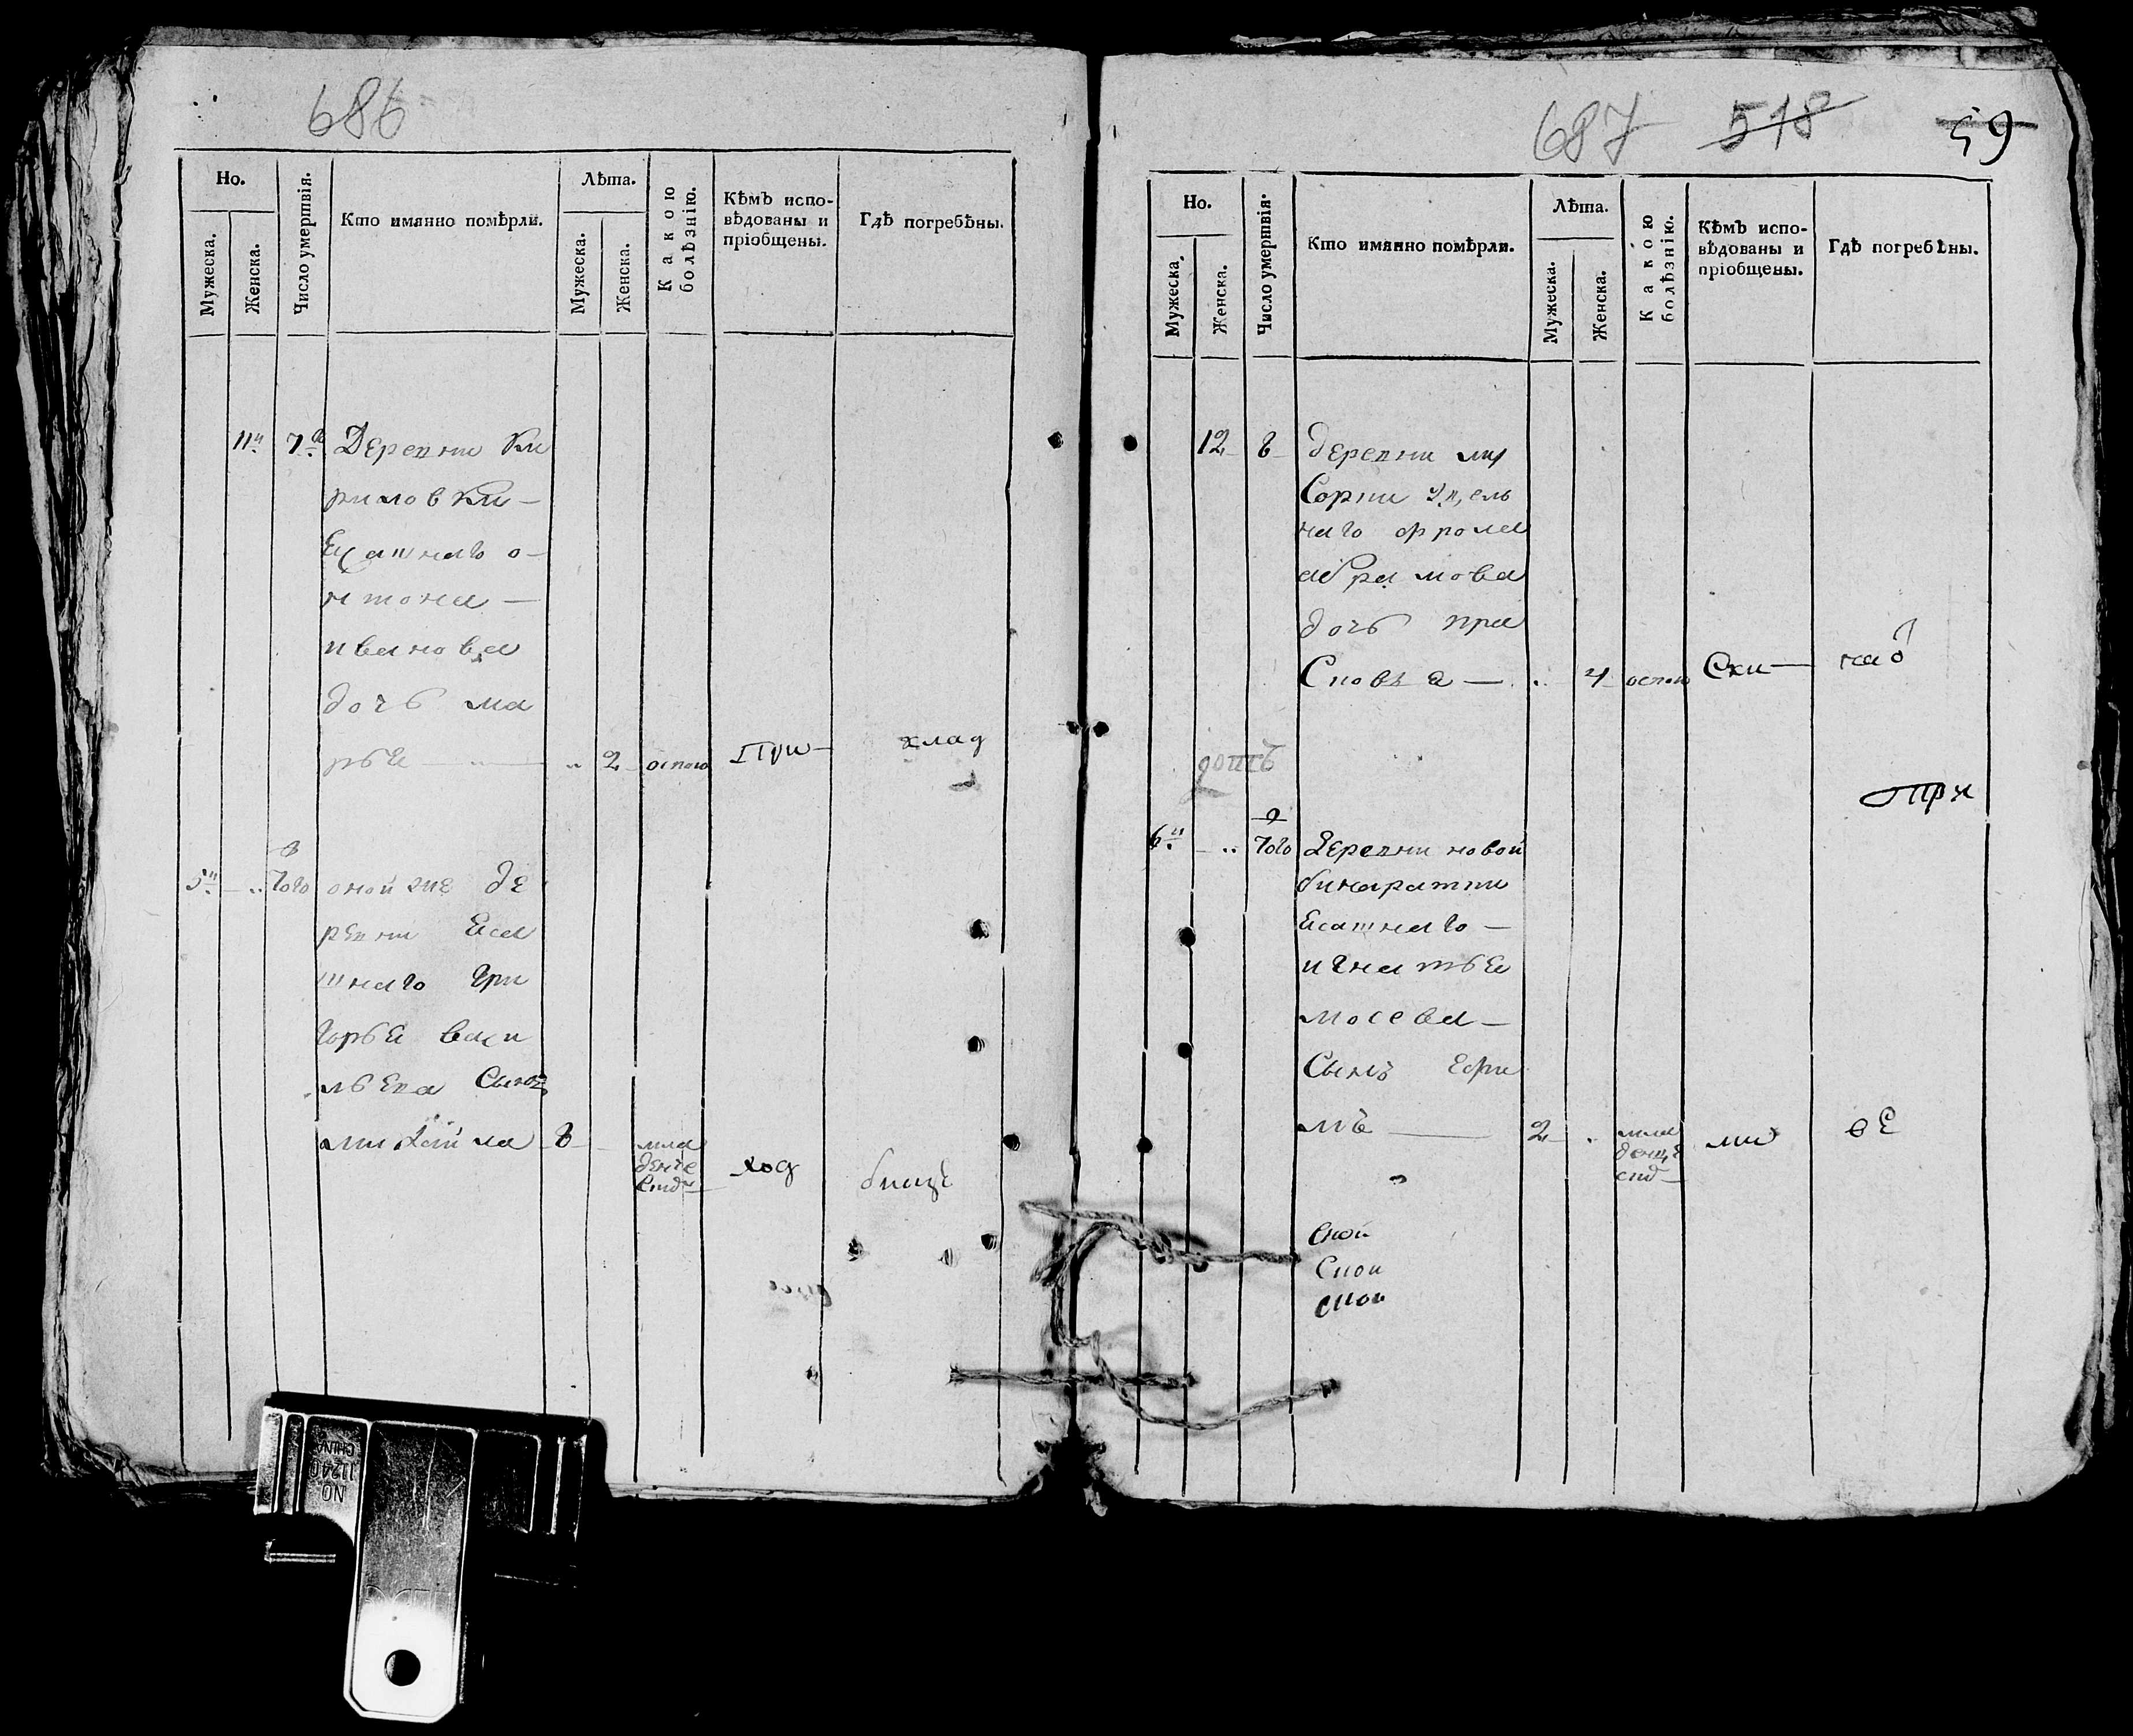 686
Но.
Мужеска.
Женска.
Число умертвія.
Кто имянно помѣрли.
Лѣта.
Мужеска.
Женска.
Какою
болѣзнію.
Кѣмъ испо-
вѣдованы и
пріобщены.
Гдѣ погребѣны.
11й 7го Деревни Ки
риловки —
Есашнаго о-
нтона —
иванова
дочь ма
рья — .. 2 оспою При- клад
5й — .. Того оной же де
ревни Яса
шнаго Гри
горья васи
льева Сынъ
михайла 8 мла
денче
ств
ход бищѣ
687 518 59
Но.
Мужеска.
Женска.
Число умертвія.
Кто имянно помѣрли.
Лѣта.
Мужеска.
Женска.
Какою
болѣзнію.
Кѣмъ испо-
вѣдованы и
пріобщены.
Гдѣ погребѣны.
12 8 деревни
Сорми Удѣль
наго фрола
абрамова
дочь пра
Сковья — .. 4 оспою Ски —
При
9
6й .. Того Деревни новой
бинаратки
Ясашнаго —
игнатья
мосева —
Сынъ Ефи
мъ — 2 .. мла
денче
ств
ми ве
Спой
Спои
Спои
NO
11240
CHINA